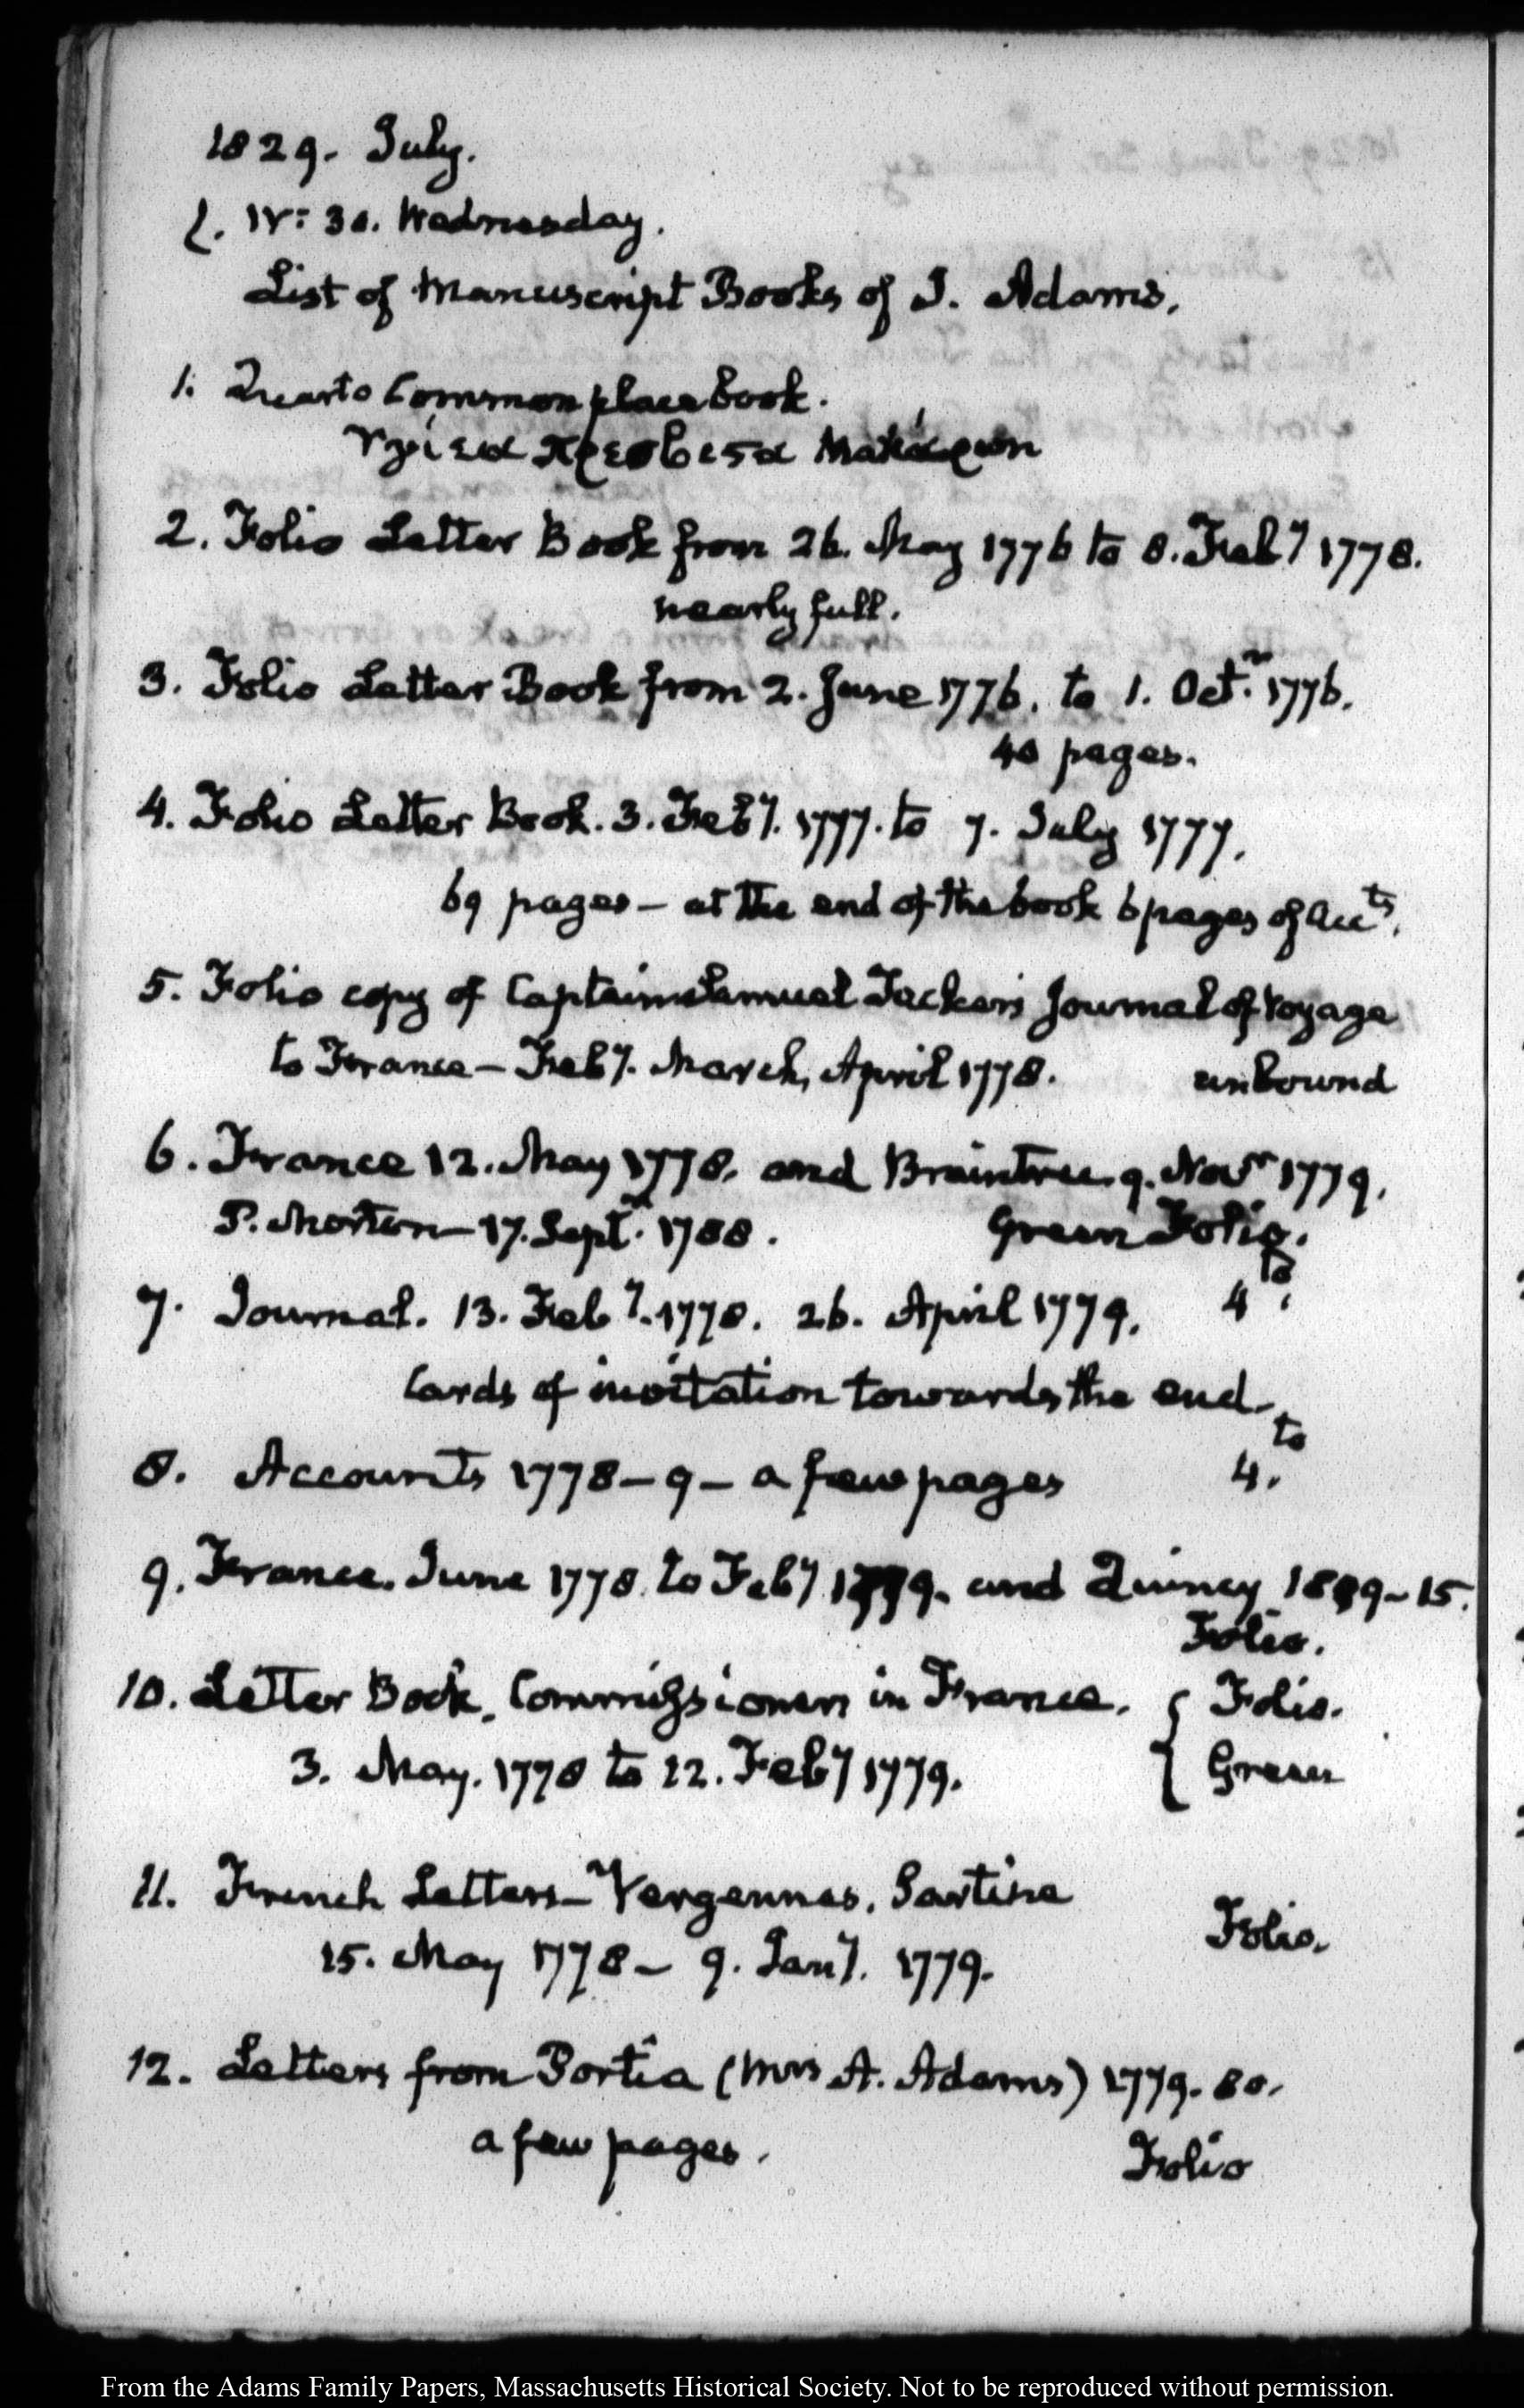 1829. July.
1. IV: 30. Wednesday.
List of Manuscript Books of J. Adams.
1. Quarto Common place book.
2. Folio Letter Book from 26. May 1776 to 8. Feby 1778.
nearly full.
3. Folio Letter Book from 2. June 1776. to 1. Octr. 1776.
40 pages.
4. Folio Letter Book. 3. Feby. 1777. to 7. July 1777.
69 pages – at the end of the book 6 pages of Accts.
5. Folio copy of Captain Samuel Tucker's Journal of Voyage
to France – Feby. March, April 1778. unbound
6. France 12. May 1778. and Braintree 9. Novr 1779.
P. Morton – 17. Septr. 1788. Green Folio.
7. Journal. 13. Feby. 1778. 26. April 1779. 4to.
Cards of invitation towards the end.
8. Accounts 1778–9– a few pages 4.to
9. France. June 1778. to Feby 1779. and Quincy 1809–15.
Folio.
10. Letter Book. Commissioners in France. { Folio.
3. May. 1778 to 12. Feby 1779. { Green
11. French Letters – Vergennes. Sartine
15. May 1778 – 9. Jany. 1779. Folio.
12. Letters from Portia (Mrs A. Adams) 1779. 80.
a few pages. Folio
From the Adams Family Papers, Massachusetts Historical Society. Not to be reproduced without permission.